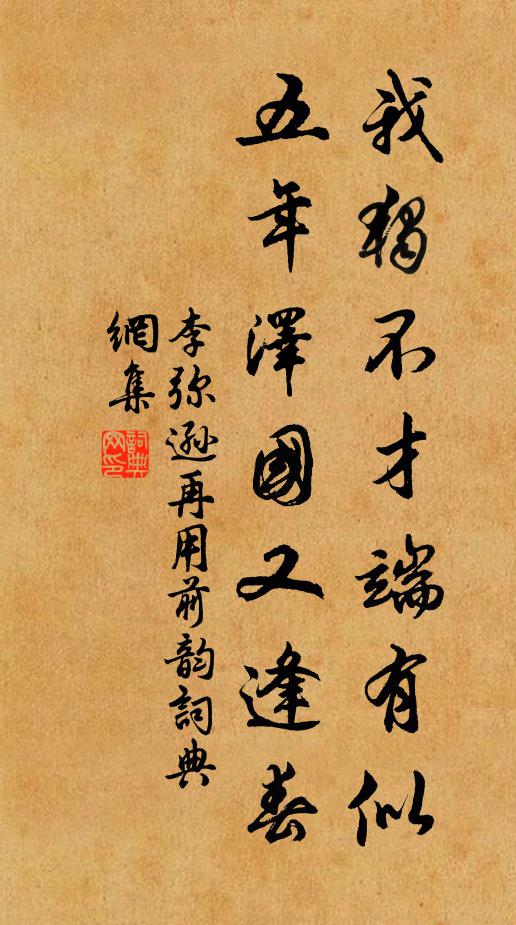 我獨不才端有似
五年澤國又逢春
李弥遜再用前韵詞典
網集
詞典
网印